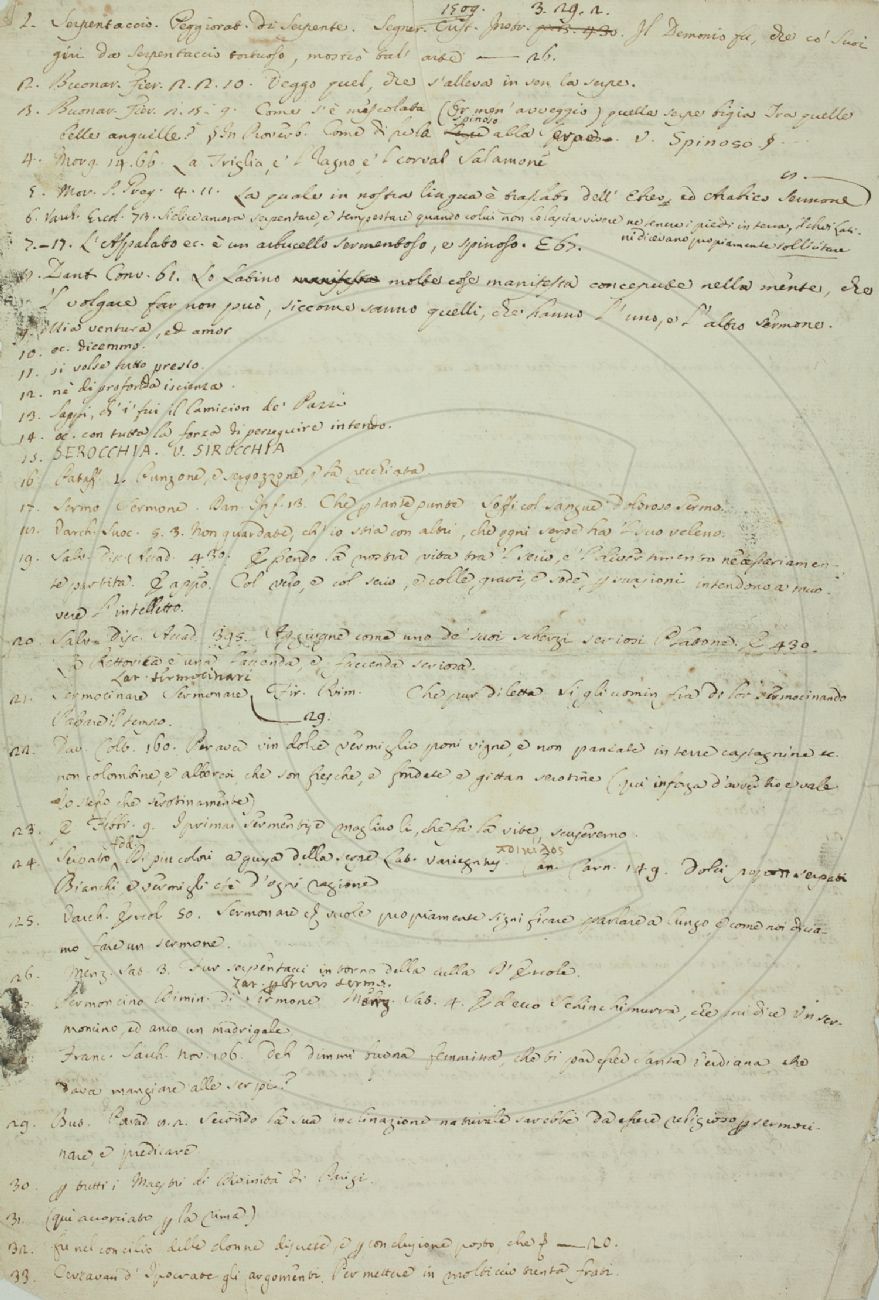 1509. 3. 29. 2.
1. Serpentaccio. Peggiorat. di Serpente. Segner. Crist. Instr. Il Demonio fu, che co' suoi
giri da serpentaccio tortuoso, mostrò tal' arte — 26.
2. Buonar. Fier. 2. 2. 10. Veggo quel, che s'alleva in sen la serpe.
3. Buonar. Fier. Come s'è mescolata (Or men' avveggio) quella serpe bigia Tra quelle
belle anguille? spinoso alla Serpe. v. Spinoso §.
4. Morg. 14. 66. La Triglia, e 'l Ragno, e 'l corval Salamone
5. Mor. S. Greg. 4. 11. La quale in nostra lingua è traslato dell' Ebreo, ed Arabico Sermone
6. Varch. Ercol. 73. Si dice ancora serpentare, e tempestare quando colui non lo lascia vivere ne tenere i piedi in terra, il che i Lat-
ni dicevano propiamente sollicitare
7. — 17. L'Aspalato ec. è un arbucello sermentoso, e spinoso. E 67.
Dant. Conv. 61. Lo Latino molte cose manifesta concepute nella mente, che
'l volgare far non può, siccome sanno quelli, che hanno l' uno, e l' altro sermone.
9. Mia ventura, ed amor
10. ec. dicemmo.
11. si volse tutto presto.
12. nè di profonda iscienza.
13. Sappi, ch' i' fui il Camicion de' Pazzi
14. ec. con tutta la forza di perseguire intendo.
15. SEROCCHIA. V. SIROCCHIA
16. Pataff. 1. Punzone, e sergozzone, e la recchiata
17. Sermo Sermone. Dan. Inf. 13. Che per tante punte Soffi col sangue doloroso sermo.
18. Varch. Suoc. 5. 3. Non guardate, ch' io stia con altri, che ogni serpe ha 'l suo veleno.
19. Salv. Disc. Acad. 430. Essendo la nostra vita tra 'l serio, e 'l divertimento necessariamen-
te partita. E appo. Col vero, e col serio, e colle gravi, e sode persuasioni intendono a muo-
vere l'intelletto.
20. Salv. Disc. Accad. 395. Aggiugne come uno de' suoi scherzi seriosi Platone. E 430.
La Rettorica è una faccenda, e faccenda seriosa.
Lat. sermocinari
21. Sermocinare Sermonare Fir. Rim. Che pur diletta Si gli uomin fra di lor sermocinando
Passare il tempo. — 29.
22. Dav. Colt. 160. Per aver vin dolce vermiglio poni vigne, e non pancate in terre castagnine ec.
non colombine, e alberesi che son fresche, e fondate, e gettan serotine (qui in forza d'avverbio e vale
lo stesso che serotinamente)
23. E 9. I primai sermenti, e magliuoli, che fa la vite, scuseremo.
24. Serpato Di più colori a guisa della serpe Lat. variegatus, ποικίλος Can. Carn. 149. Dolci popon serpati
Bianchi e vermigli c'è d'ogni ragione
25. Varch. Ercol. 50. Sermonare che vuole propiamente significare parlare a lungo, e come noi dicia-
mo fare un sermone.
26. Menz. Sat. 3. Fur serpentacci intorno della culla D' Ercole.
Lat. brevis sermo.
Sermoncino Dimin. di Sermone Menz. Sat. 4. Ed ecco che mi dice Un ser-
moncino, ed anco un madrigale
Franc. Sacch. nov. 106. Deh dimmi buona femmina, che ti par esser Santa Verdiana che
dava mangiare alle serpi?
29. But. Parad. 8. 2. Secondo la sua inclinazione naturale sarebbe da essere religioso per sermoci-
nare, e predicare
30. tutti i Maestri di Divinità di Parigi.
31. (qui accorciato per la rima)
32. fu nel concilio delle donne discrete, e per conclusione posto, che — 20.
33. gli argomenti, Per mettere in molticcio trenta frati.